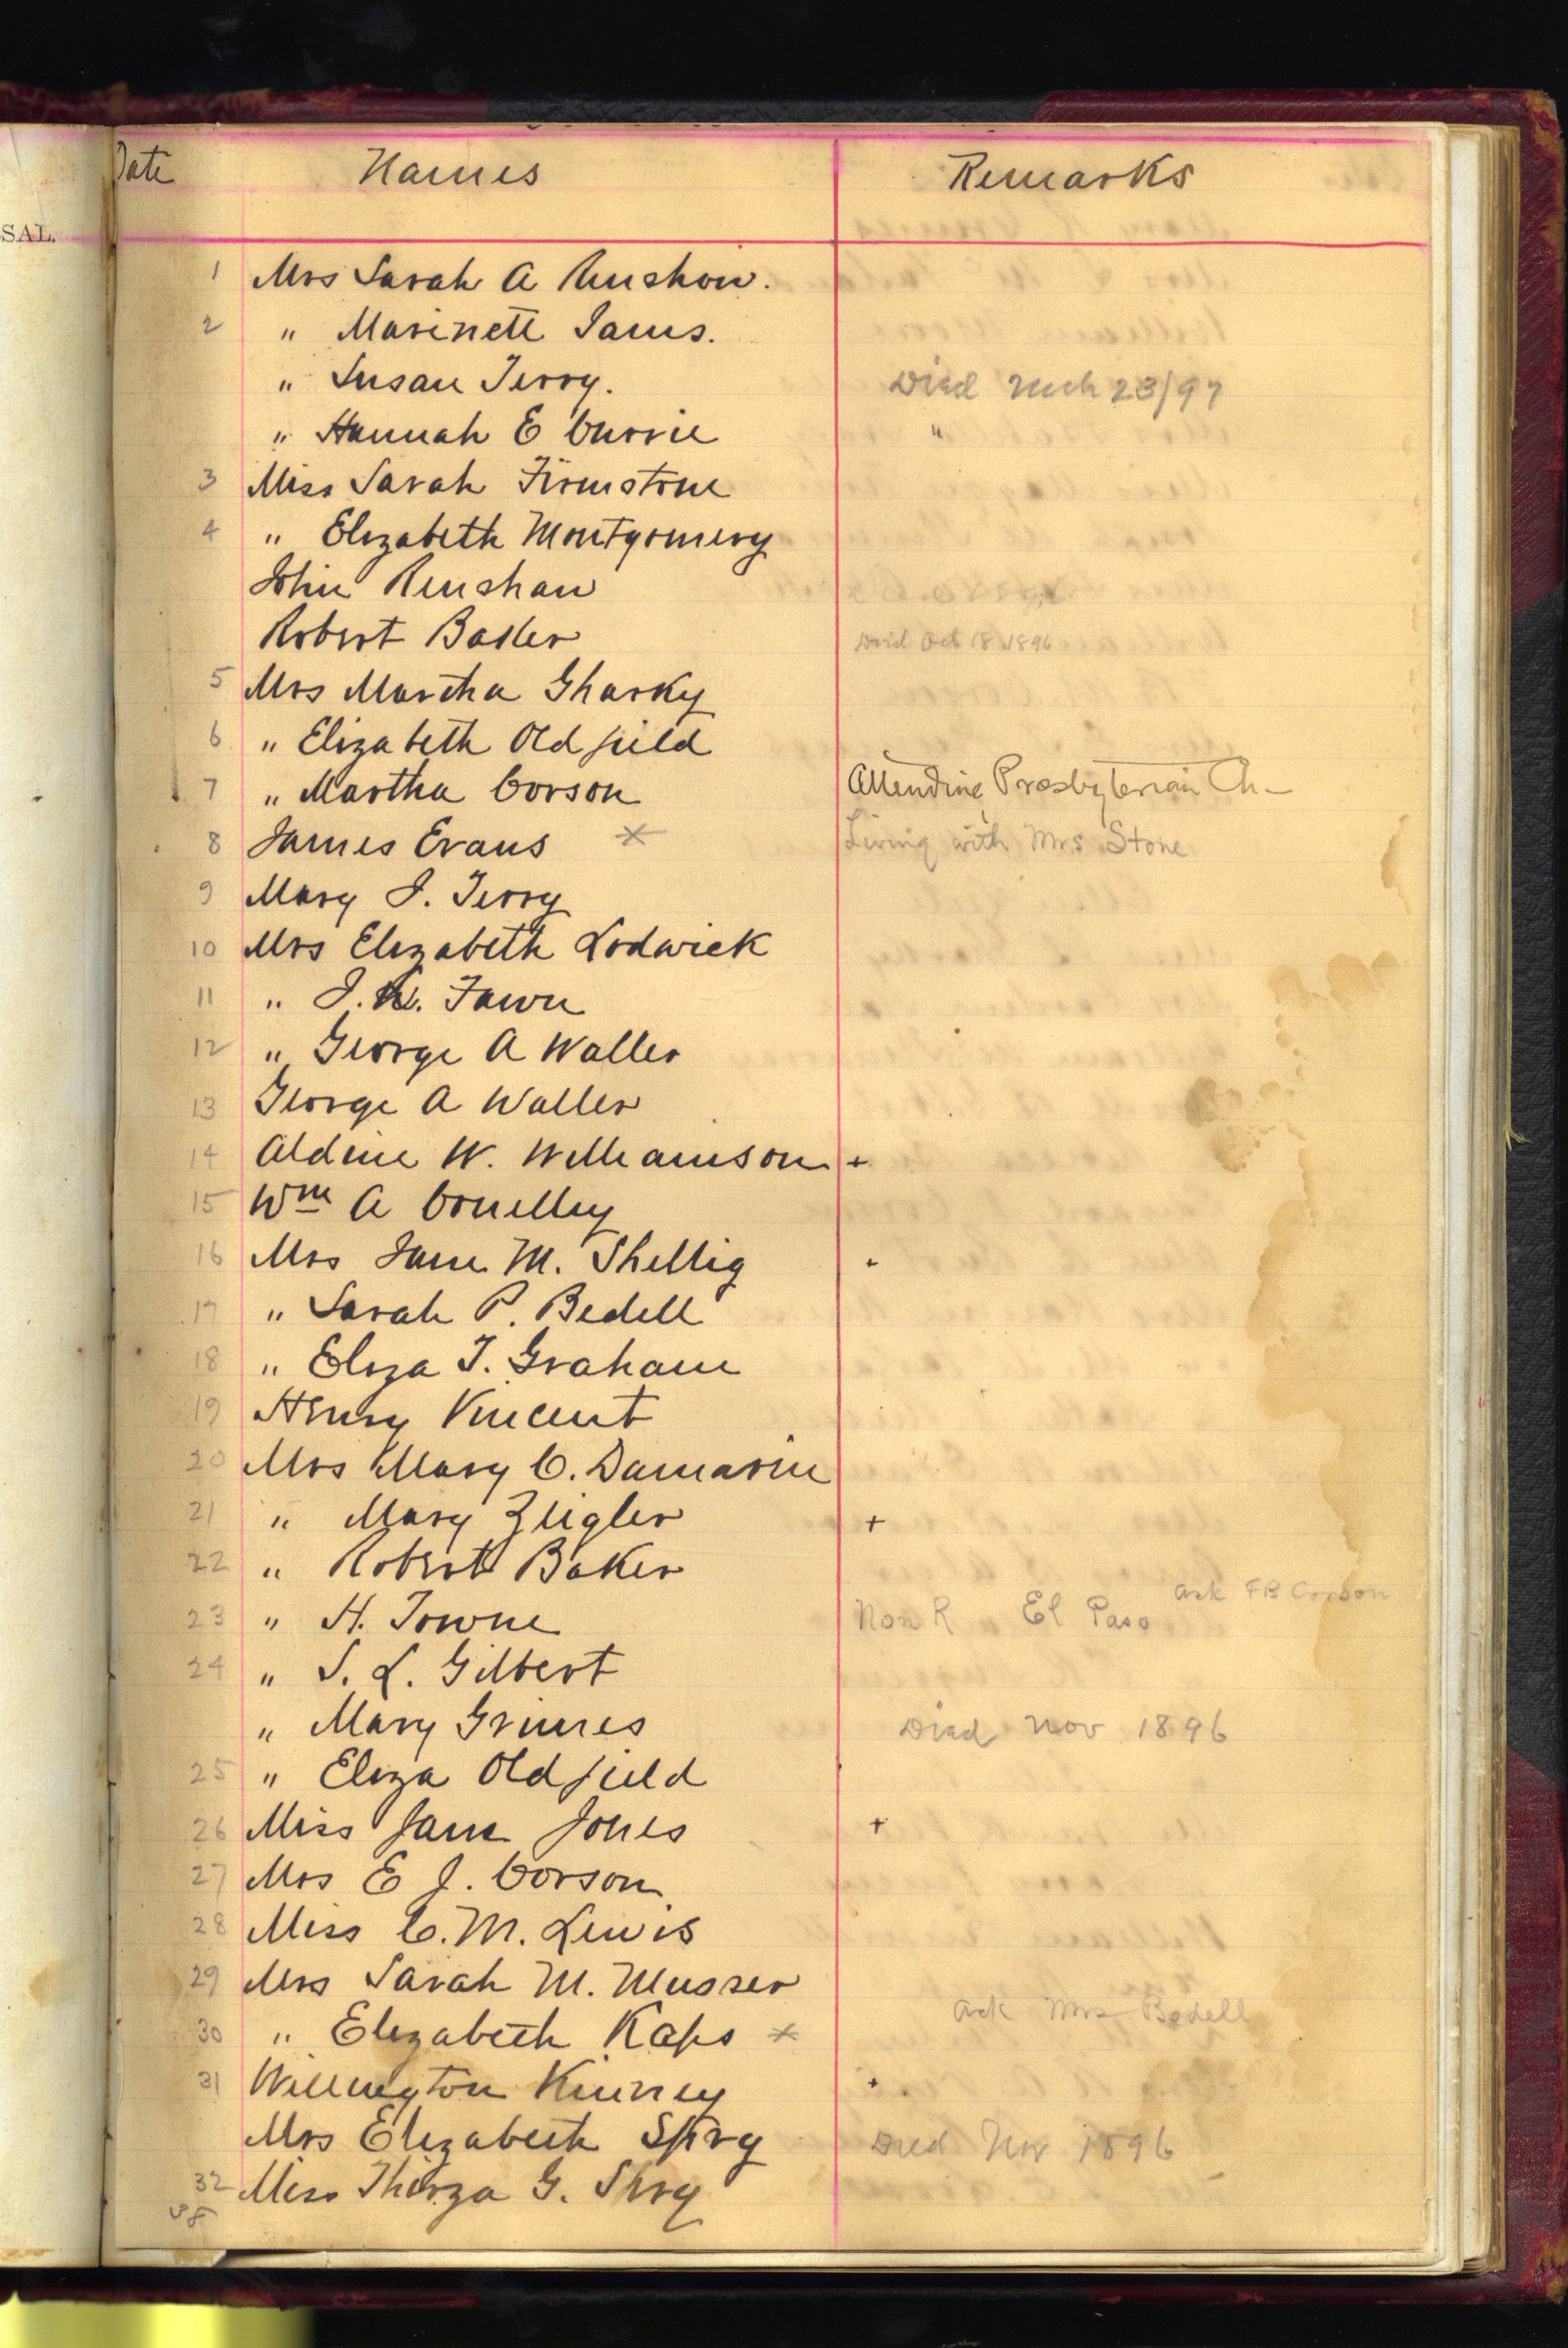 SAL.
Date Names Remarks
1 Mrs Sarah A Renshaw.
2 " Marinett Iams.
" Susan Terry. Died Mch 23/97
" Hannah E Currie "
3 Miss Sarah Firmstone
4 " Elizabeth Montgomery
John Renshaw
Robert Baker Died Oct 18 1896
5 Mrs Martha Gharky
6 " Elizabeth Oldfield
7 " Martha Corson Attending Presbyterian Ch-
8 James Evans × Living with Mrs Stone
9 Mary J. Terry
10 Mrs Elizabeth Lodwick
11 " J. Fawn
12 " George A Waller
13 George A Waller
14 Aldine W. Williamson +
15 Wm A Conelley
16 Mrs Jane M. Shellig +
17 " Sarah P. Bedell
18 " Eliza T. Graham
19 Henry Vincent
20 Mrs Mary C. Damarin
21 " Mary Zeigler +
22 " Robert Baker
23 " H. Towne Non R El Paso ask FB Corson
24 " S. L. Gilbert
" Mary Grimes Died Nov 1896
25 " Eliza Oldfield
26 Miss Jane Jones +
27 Mrs E J. Corson
28 Miss C. M. Lewis
29 Mrs Sarah M. Musser
30 " Elizabeth Kaps × ask Mrs Bedell
31 Wellington Kinney +
Mrs Elizabeth Spry Died Nov 1896
32 Miss Thirza G. Spry
38